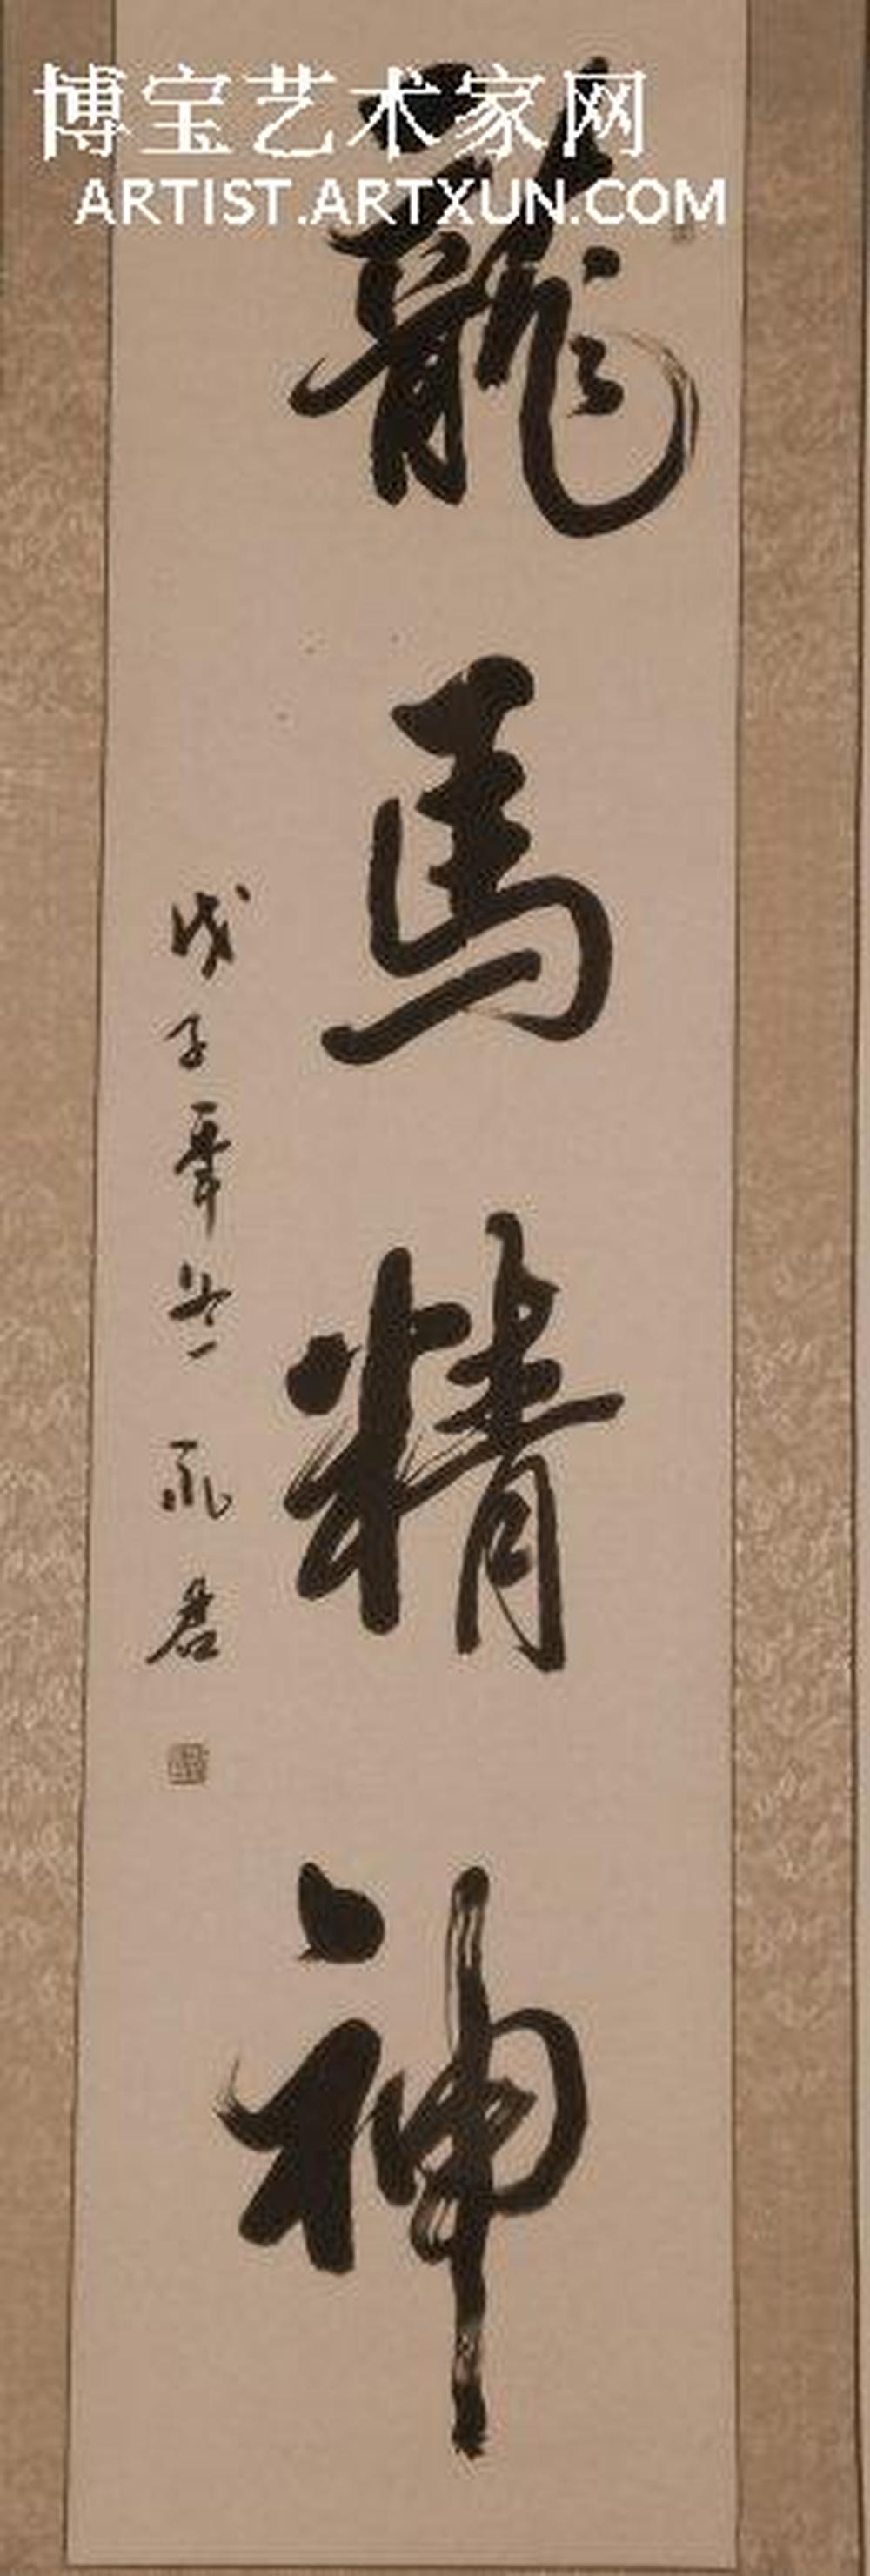 博宝艺术家网
ARTIST.ARTXUN.COM
龍馬精神
戊子年冬